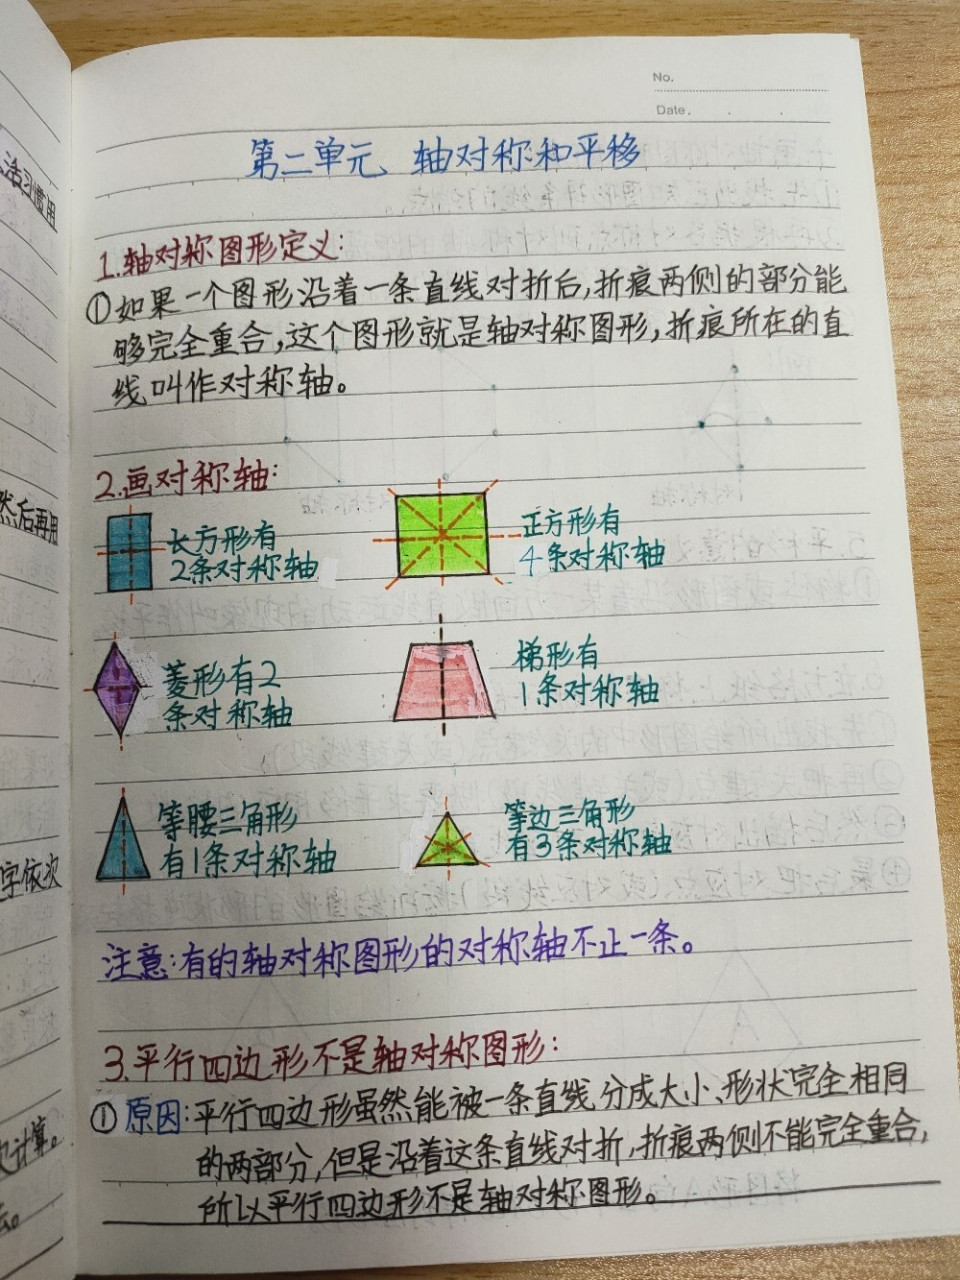 No.
Date.
第二单元、轴对称和平移
1.轴对称图形定义:
①如果一个图形沿着一条直线对折后,折痕两侧的部分能
够完全重合,这个图形就是轴对称图形,折痕所在的直
线叫作对称轴。
2.画对称轴:
长方形有
2条对称轴
正方形有
4条对称轴
菱形有2
条对称轴
梯形有
1条对称轴
等腰三角形
有1条对称轴
等边三角形
有3条对称轴
注意:有的轴对称图形的对称轴不止一条。
3.平行四边形不是轴对称图形:
①原因:平行四边形虽然能被一条直线分成大小、形状完全相同
的两部分,但是沿着这条直线对折,折痕两侧不能完全重合,
所以平行四边形不是轴对称图形。
习惯用
然后再用
字依次
计算。